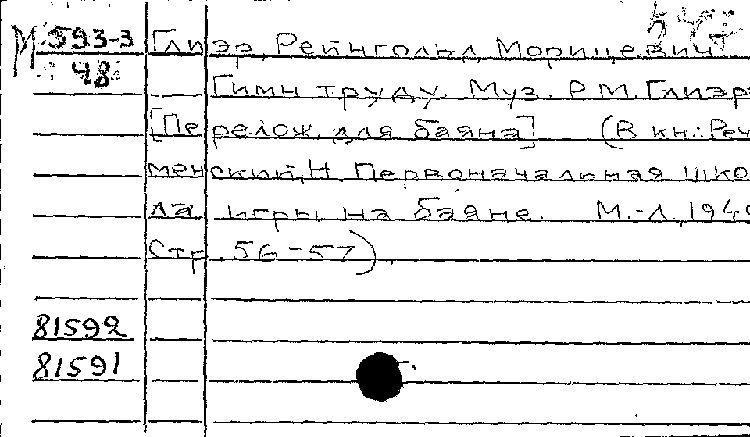 М 593-3
48
Глиэр, Рейнгольд Морицевич
Гимн труду. Муз. Р.М. Глиэр
[Перелож. для баяна] (В кн.: Реч
менский, Н. Первоначальная шко
ла игры на баяне. М.-Л., 194
Стр. 56-57).
81592
81591